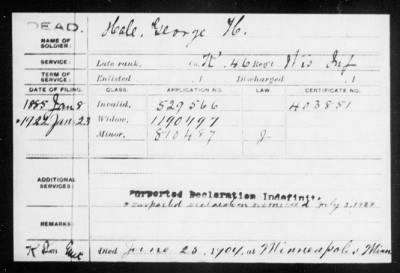 DEAD.
Hale, George H.
NAME OF SOLDIER:
SERVICE: Late rank, Co. K, 46 Reg't Wis Inf
TERM OF SERVICE: Enlisted , 1 Discharged , 1
DATE OF FILING. CLASS. APPLICATION NO. LAW. CERTIFICATE NO.
1885 Jan 8 Invalid, 529566 403851
1922 Jan 23 Widow, 1190497
Minor, 810487 J
ADDITIONAL SERVICES:
Purported Declaration Indefinite.
REMARKS:
Died June 23, 1904, at Minneapolis Minn